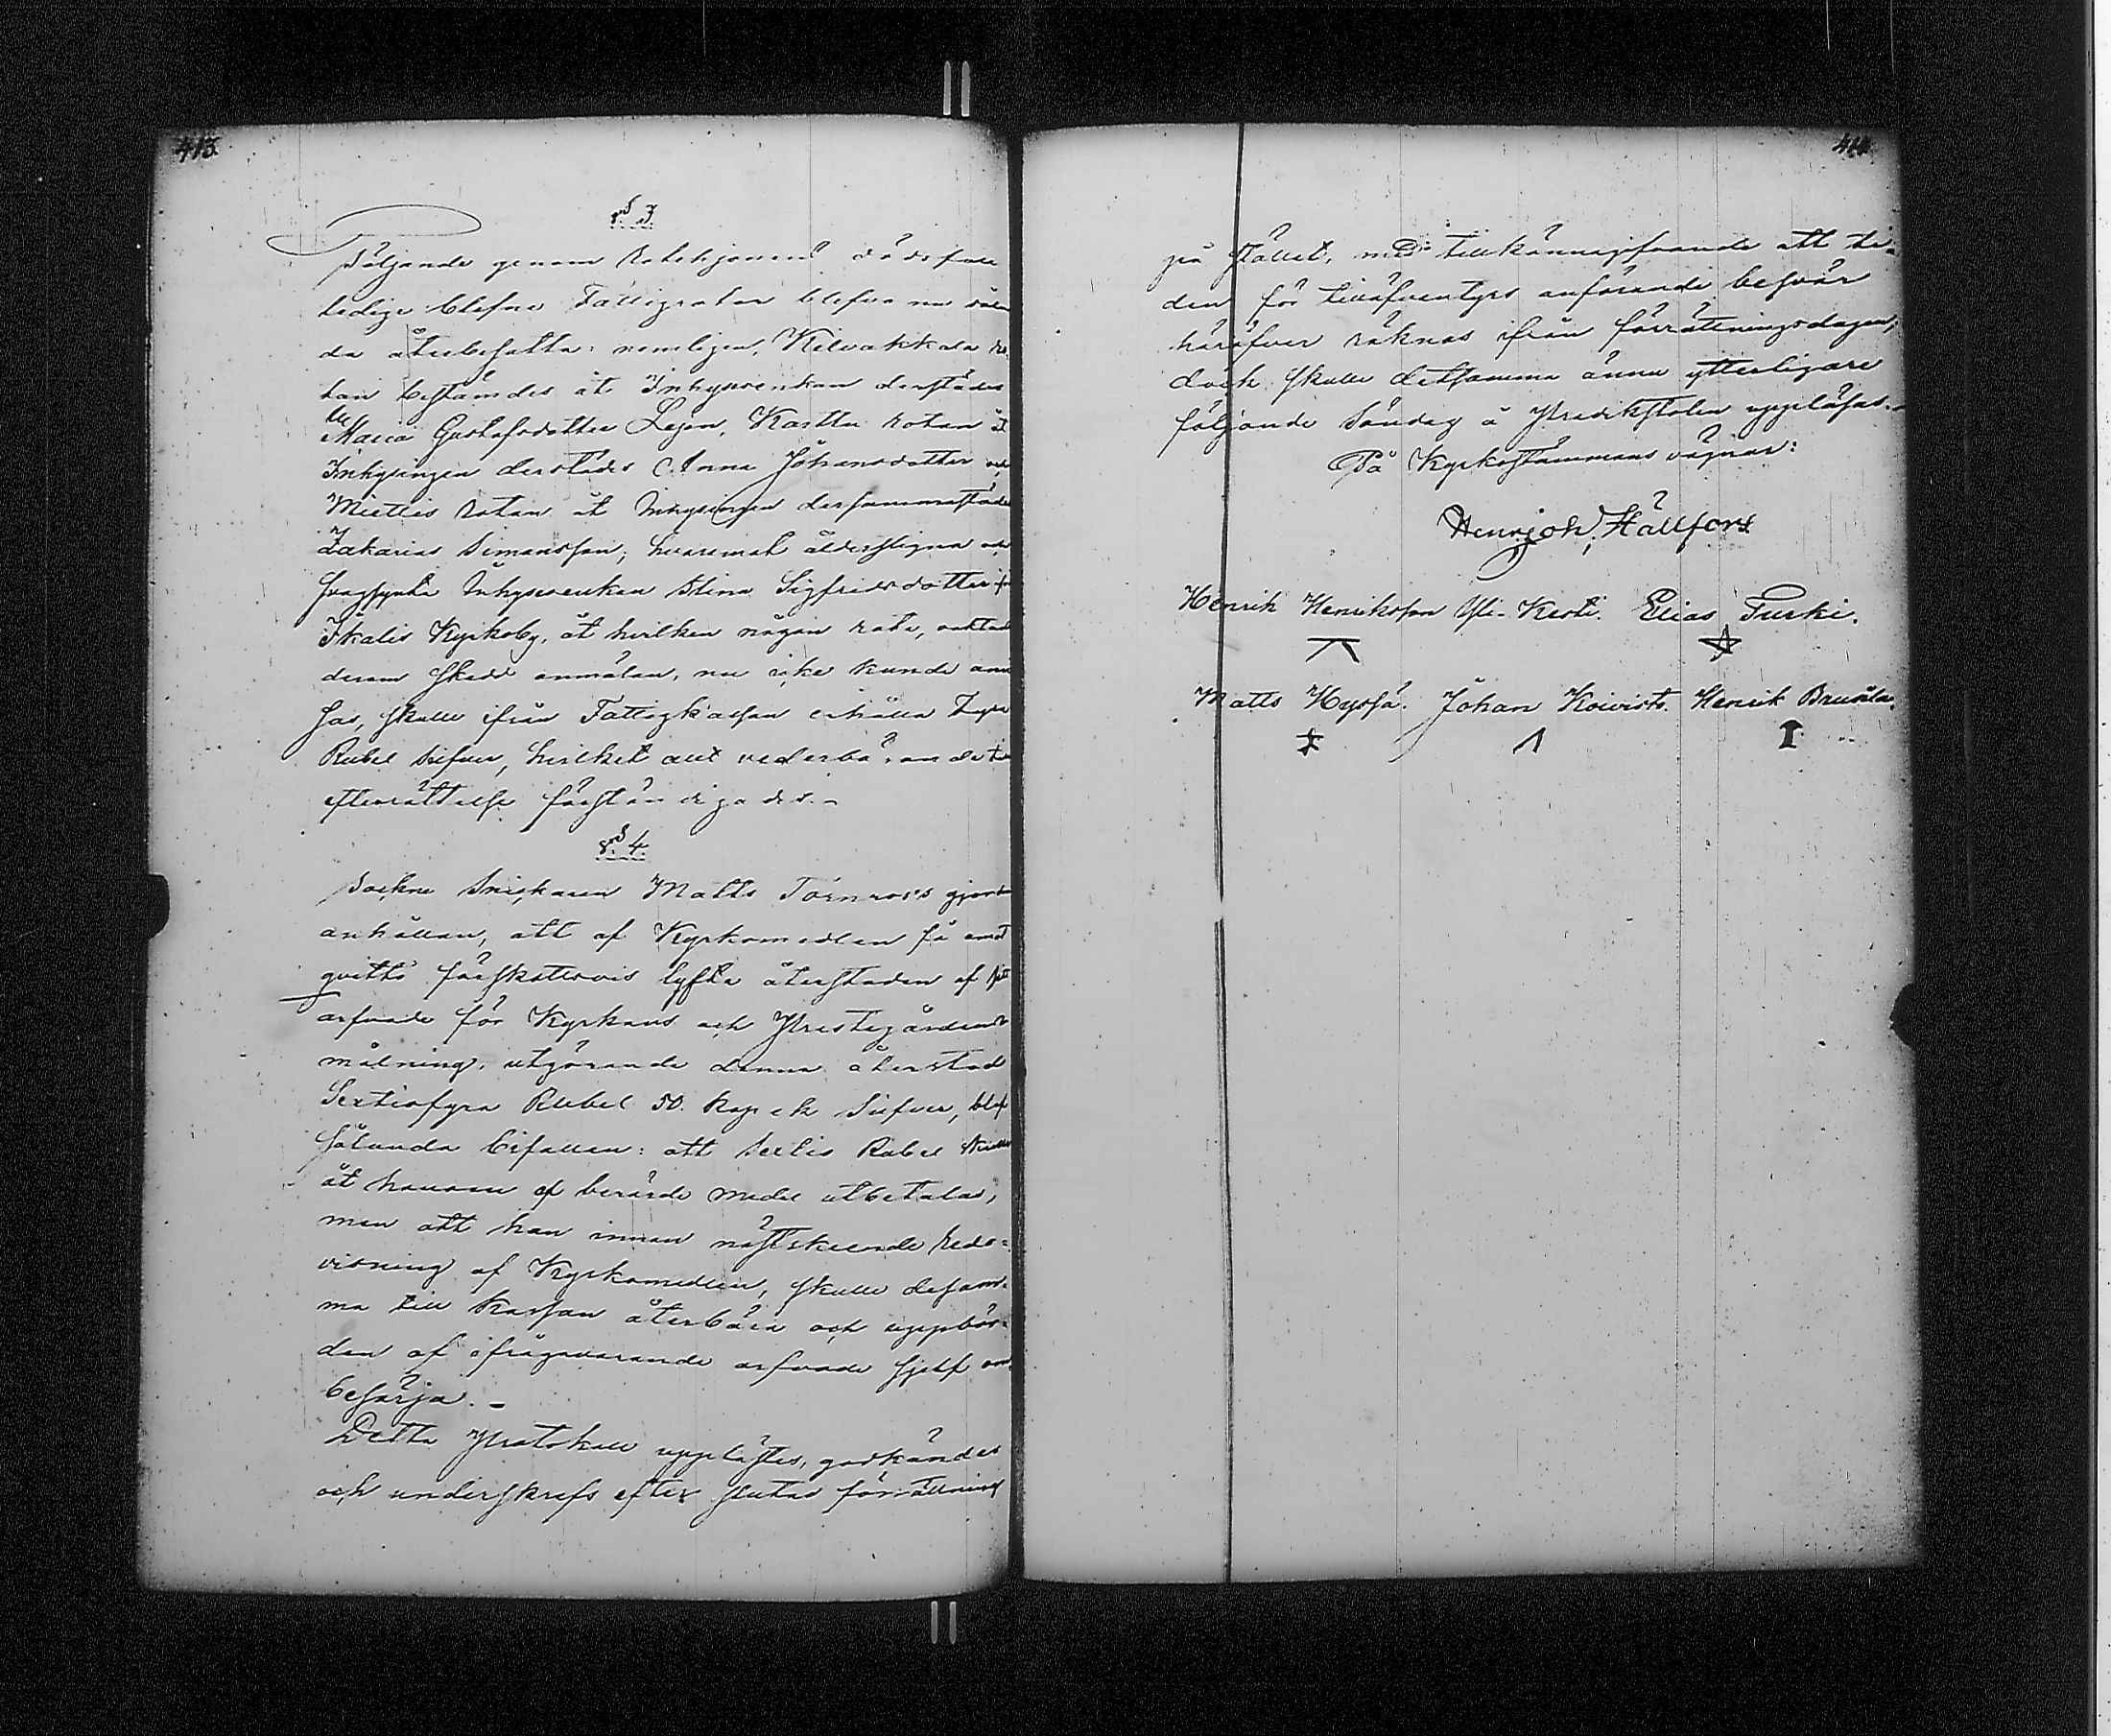 413.
§ 3.
Följande genom Rotehjonens dödsfall
ledige blefne Fattigrotar blefvo nu sålun
da återbesatta: nemligen, Kilvakkala Ro
tan bestämdes åt Inhysesenkan derstädes
Maria Gustafsdotter Lejon, Karttu rotan åt
Inhysingen derstädes Anna Johansdotter och
Miettis rotan åt Inhysingen dersammastädes
Zakarias Simansson, hvaremot ålderstigna och
svagsynta Inhysesenkan Stina Sigfridsdotter ifrån
Ikalis Kyrkoby, åt hvilken någon rote, oaktad
derom skedd anmälan, nu icke kunde anvi
sas, skulle ifrån Fattigkassan erhålla Fyra
Rubel Silfver, hvilket allt vederbörande till
efterrättelse förständigades.-
§ 4.
Sockne Snickaren Matts Törnroos gjorde
anhållan, att af Kyrkomedlen få emot
qvitto förskottsvis lyfta återstoden af sitt
arfvode för Kyrkans och Prestegårdens
målning, utgörande denna återstod
Sextiofyra Rubel 50. Kopek Silfver, blef
sålunda bifallen: att Sextio Rubel skulle
åt honom af berörde medel utbetalas,
men att han innan nästskeende Redo=
visning af Kyrkomedlen, skulle desam=
ma till Kassan återbära och uppbör=
den af ifrågavarande arfvode sjelf om
besörja.-
Detta Protokoll upplästes, godkändes
och underskrefs efter slutad förrättning
414.
på stället, med tillkännagifvande att ti=
den för tilläfventyrs anförande besvär
häröfver räknas ifrån förrättningsdagen,
dock skulle detsamma ännu ytterligare
följande Söndag å Predikstolen uppläsas.-
På Kyrkostämmans vägnar:
Henr. Joh. Hällfors
Henrik Henriksson Yli-Kesti. Elias Turki.
Matts Hyssä. Johan Koivisto. Henrik Brusila.